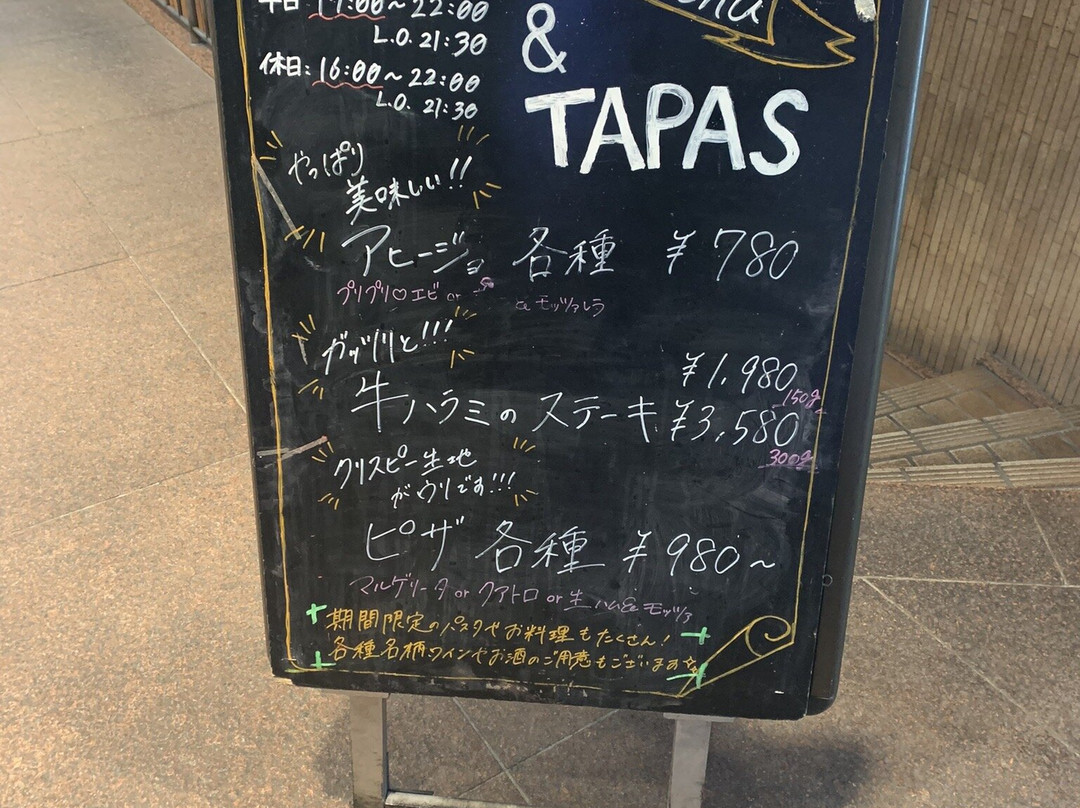 平日: 17:00~22:00
L.O. 21:30
休日: 16:00~22:00
L.O. 21:30
&
TAPAS
やっぱり
美味しい!!
アヒージョ 各種 ¥780
プリプリ♡エビ or
& モッツァレラ
ガッツリと!!!
¥1,980
150g
牛ハラミのステーキ ¥3,580
300g
クリスピー生地
がウリです!!!
ピザ 各種 ¥980~
マルゲリータ or クアトロ or 生ハム& モッツァ
期間限定のパスタやお料理もたくさん!
各種名柄ワインやお酒のご用意もございます☆